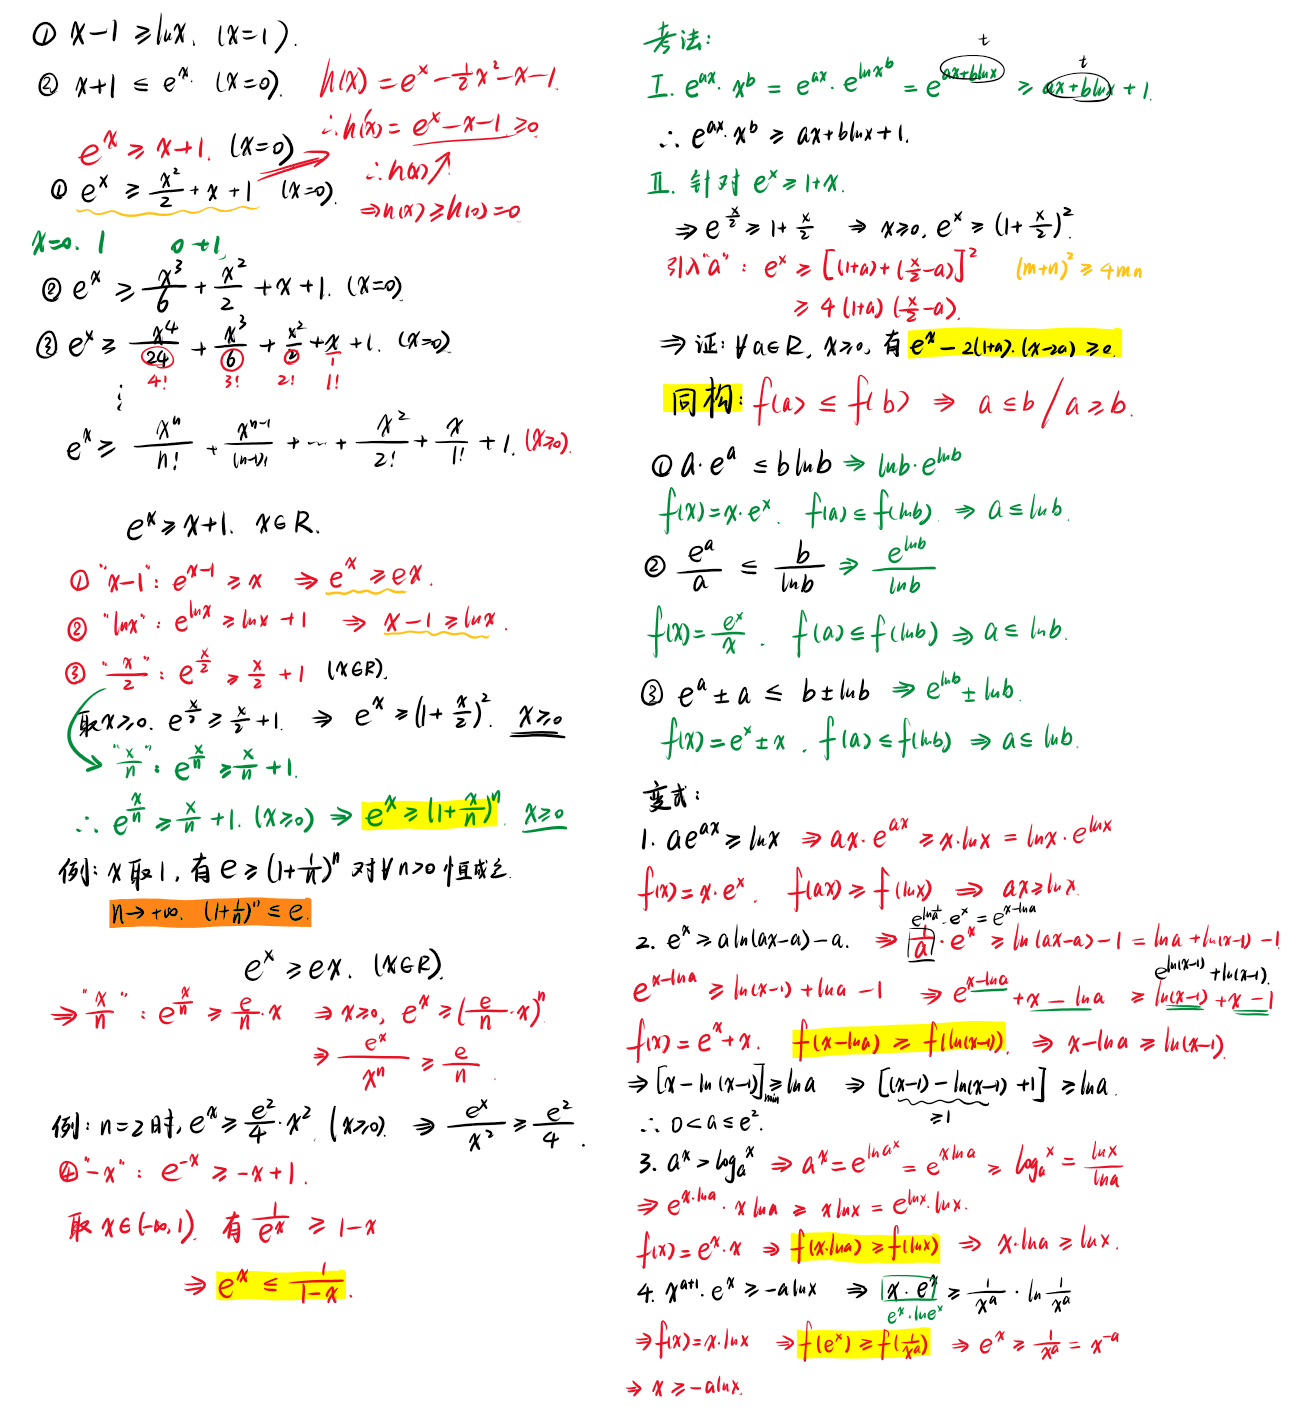 ① x-1 ≥ lnx. (x=1).
② x+1 ≤ e^x. (x=0).
h(x) = e^x - 1/2 x² - x - 1.
∴h'(x) = e^x - x - 1 ≥ 0
∴h(x)↗
⇒h(x) ≥ h(0) = 0
e^x ≥ x+1. (x=0)
① e^x ≥ x²/2 + x + 1 (x=0).
x=0. 1 0+1
② e^x ≥ x³/6 + x²/2 + x + 1. (x=0)
③ e^x ≥ x⁴/24 + x³/6 + x²/2 + x/1 + 1. (x=0)
4! 3! 2! 1!
⋮
e^x ≥ x^n/n! + x^(n-1)/(n-1)! + ... + x²/2! + x/1! + 1. (x≥0).
e^x ≥ x+1. x∈R.
① "x-1": e^(x-1) ≥ x ⇒ e^x ≥ ex.
② "lnx": e^(lnx) ≥ lnx + 1 ⇒ x-1 ≥ lnx.
③ "x/2": e^(x/2) ≥ x/2 + 1 (x∈R).
取x≥0. e^(x/2) ≥ x/2 + 1. ⇒ e^x ≥ (1+x/2)². x≥0
"x/n": e^(x/n) ≥ x/n + 1.
∴ e^(x/n) ≥ x/n + 1. (x≥0) ⇒ e^x ≥ (1+x/n)^n. x≥0
例: x取1, 有 e ≥ (1+1/n)^n 对∀n>0恒成立.
n→+∞. (1+1/n)^n ≤ e.
e^x ≥ ex. (x∈R).
⇒"x/n": e^(x/n) ≥ e/n·x ⇒ x≥0, e^x ≥ (e/n·x)^n
⇒ e^x/x^n ≥ e/n.
例: n=2时, e^x ≥ e²/4·x². (x≥0) ⇒ e^x/x² ≥ e²/4.
④"-x": e^(-x) ≥ -x+1.
取 x∈(-∞,1). 有 1/e^x ≥ 1-x
⇒ e^x ≤ 1/(1-x).
考法:
t t
I. e^(ax)·x^b = e^(ax)·e^(lnx^b) = e^(ax+blnx) ≥ ax+blnx + 1.
∴ e^(ax)·x^b ≥ ax+blnx+1.
II. 针对 e^x ≥ 1+x.
⇒ e^(x/2) ≥ 1+x/2 ⇒ x≥0, e^x ≥ (1+x/2)².
引入"a": e^x ≥ [(1+a)+(x/2-a)]² (m+n)² ≥ 4mn
≥ 4(1+a)(x/2-a).
⇒ 证: ∀a∈R, x≥0, 有 e^x - 2(1+a)·(x-2a) ≥ 0.
同构: f(a) ≤ f(b) ⇒ a≤b / a≥b.
① a·e^a ≤ blnb ⇒ lnb·e^(lnb)
f(x)=x·e^x. f(a) ≤ f(lnb). ⇒ a≤lnb.
② e^a/a ≤ b/lnb ⇒ e^(lnb)/lnb
f(x)=e^x/x. f(a) ≤ f(lnb) ⇒ a≤lnb.
③ e^a ± a ≤ b±lnb ⇒ e^(lnb) ± lnb.
f(x)=e^x±x. f(a) ≤ f(lnb) ⇒ a≤lnb.
变式:
1. ae^(ax) ≥ lnx ⇒ ax·e^(ax) ≥ x·lnx = lnx·e^(lnx)
f(x)=x·e^x. f(ax) ≥ f(lnx) ⇒ ax≥lnx.
e^(ln1/a)·e^x = e^(x-lna)
2. e^x ≥ aln(ax-a)-a. ⇒ 1/a·e^x ≥ ln(ax-a)-1 = lna+ln(x-1)-1
e^(ln(x-1))+ln(x-1).
e^(x-lna) ≥ ln(x-1)+lna-1 ⇒ e^(x-lna)+x-lna ≥ ln(x-1)+x-1
f(x)=e^x+x. f(x-lna) ≥ f(ln(x-1)). ⇒ x-lna ≥ ln(x-1).
⇒ [x-ln(x-1)]min ≥ lna ⇒ [(x-1)-ln(x-1)+1] ≥ lna.
≥1
∴ 0<a≤e².
3. a^x > log_a^x ⇒ a^x = e^(lna^x) = e^(xlna) ≥ log_a^x = lnx/lna
⇒ e^(x·lna)·xlna ≥ xlnx = e^(lnx)·lnx.
f(x)=e^x·x ⇒ f(x·lna) ≥ f(lnx) ⇒ x·lna ≥ lnx.
4. x^(a+1)·e^x ≥ -alnx ⇒ x·e^x ≥ 1/x^a · ln 1/x^a
e^x·lne^x
⇒f(x)=x·lnx ⇒f(e^x) ≥ f(1/x^a) ⇒ e^x ≥ 1/x^a = x^(-a)
⇒ x ≥ -alnx.